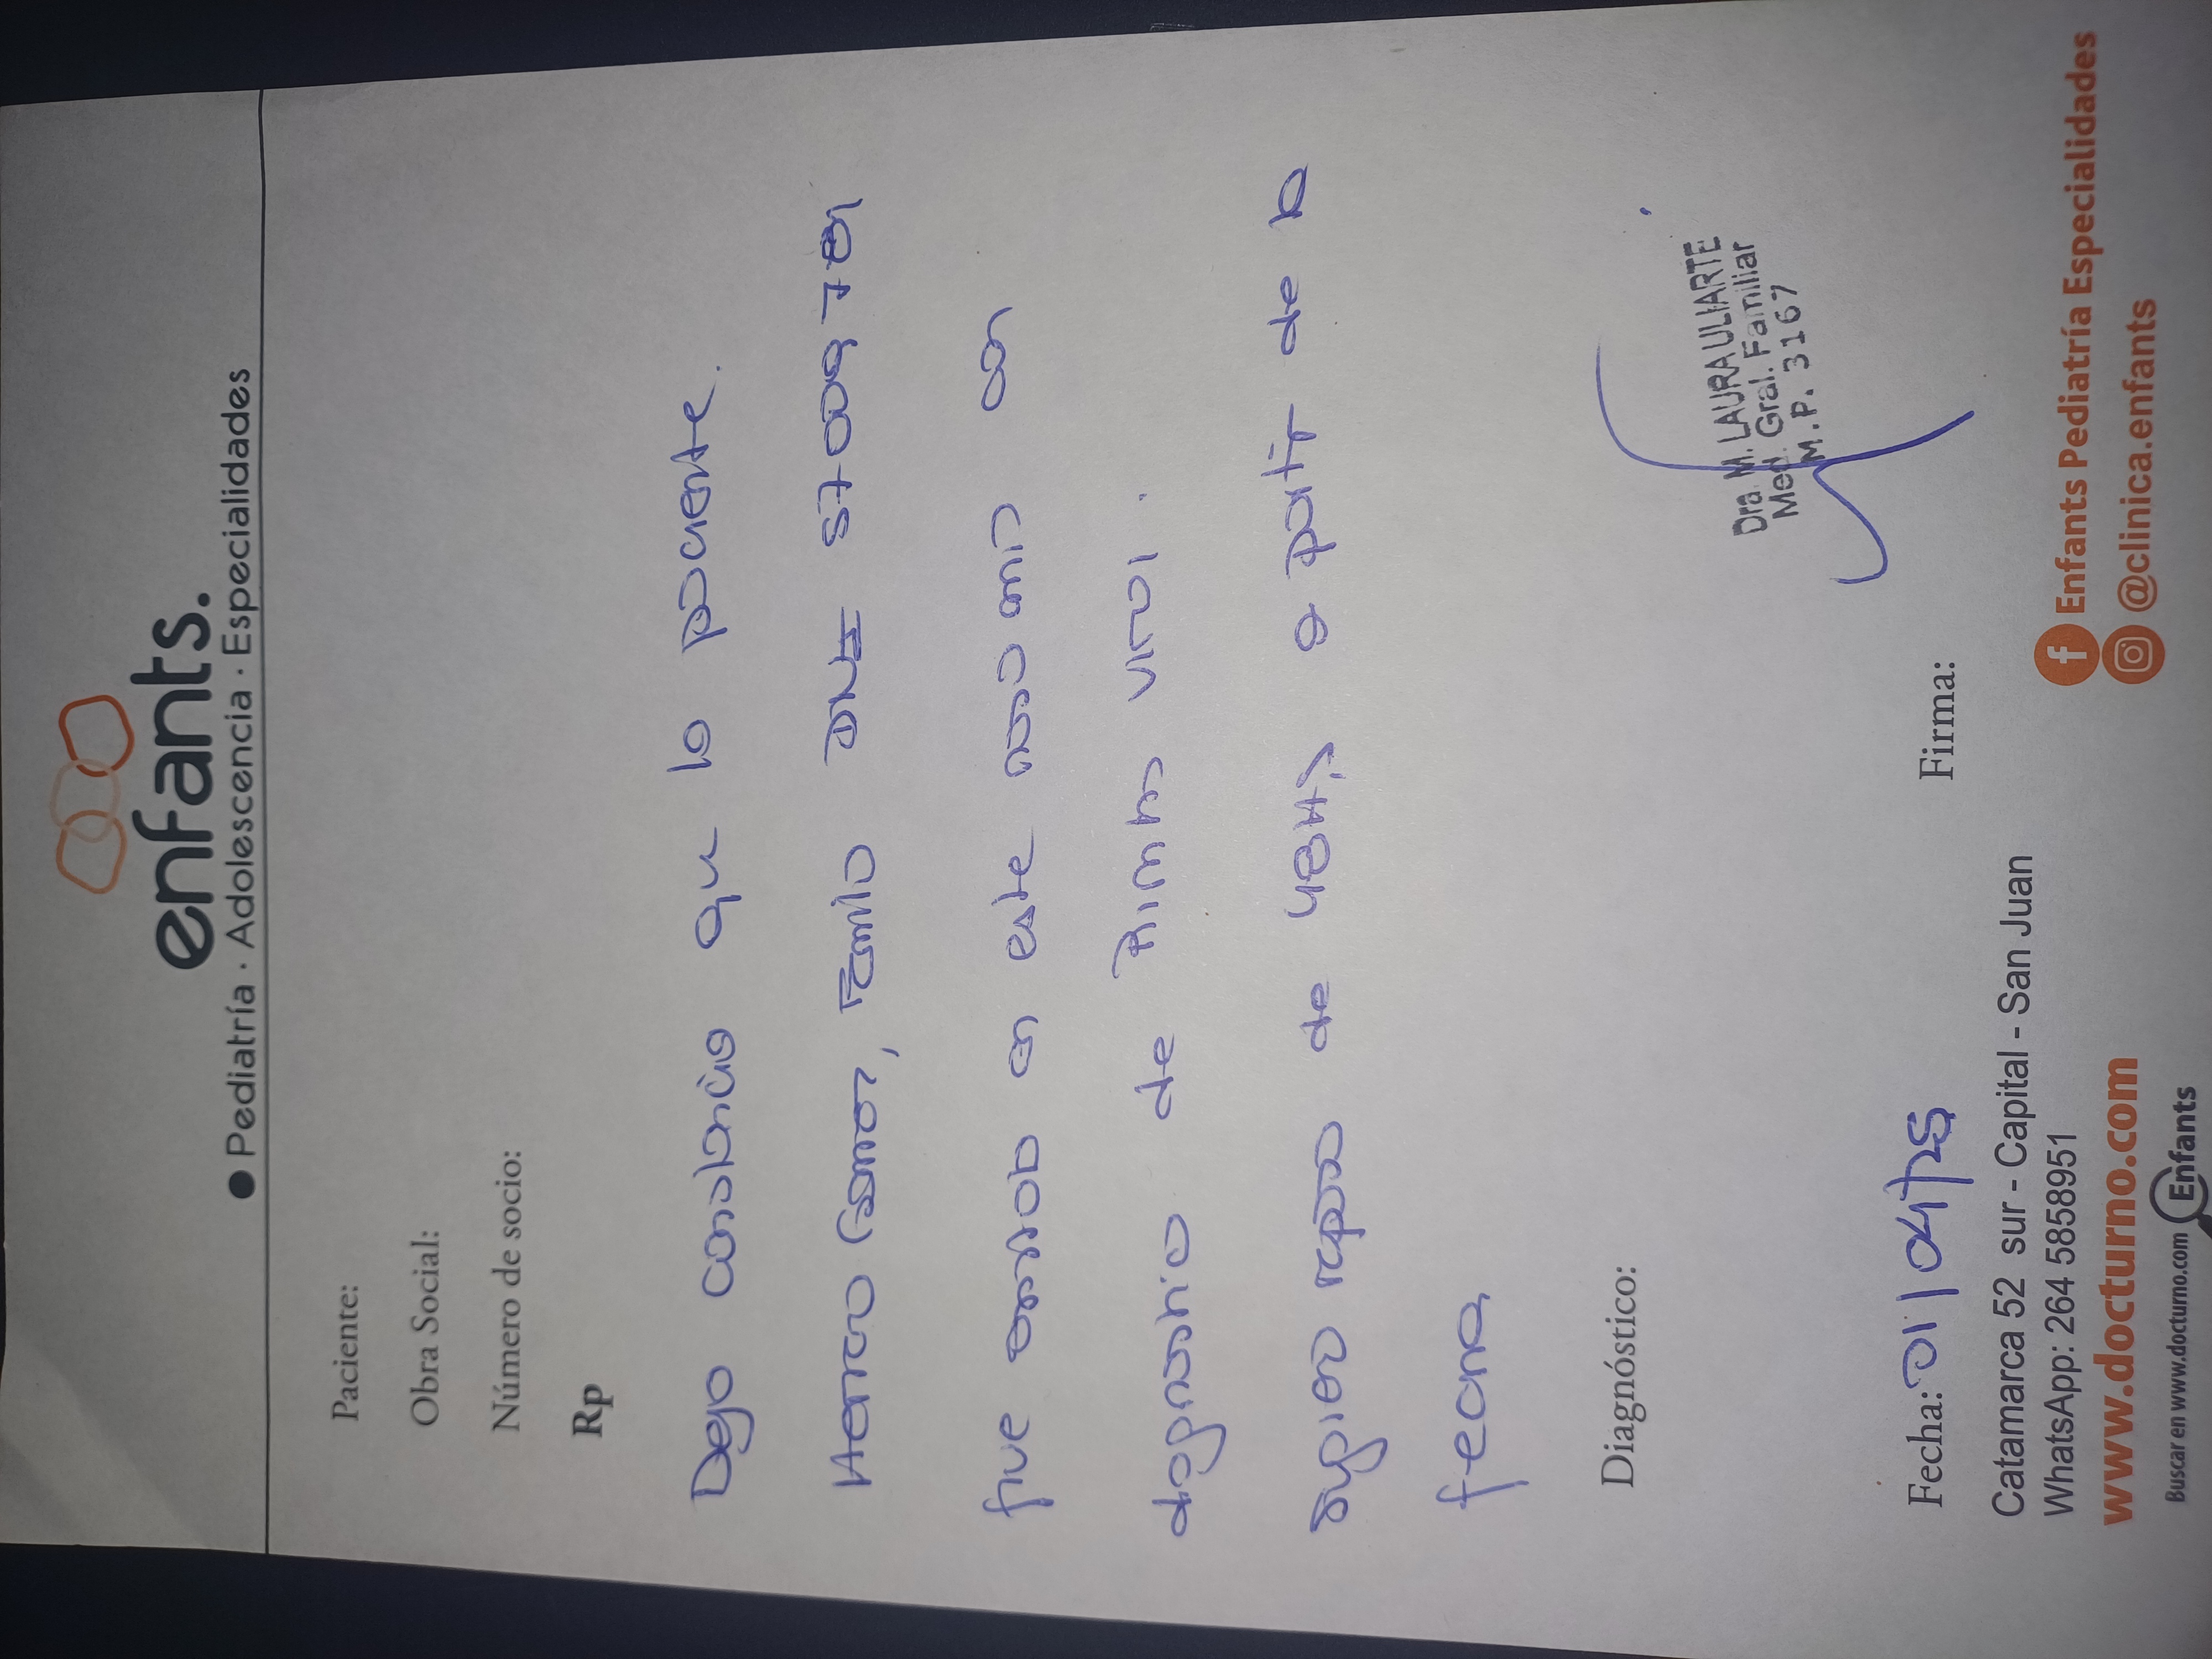 enfants.
Pediatría · Adolescencia · Especialidades
Paciente:
Obra Social:
Número de socio:
Rp
Dejo constancia que la paciente.
Emilia DNI 57009
fue en este con
diagnostico de Rinitis viral.
sugiero reposo de a partir de la
fecha
Diagnóstico:
Dra M. LAURA ULIARTE
Med. Gral. Familiar
M.P. 3167
Fecha: 01/04/25
Firma:
Catamarca 52 sur - Capital - San Juan
WhatsApp: 264 5858951
www.docturno.com
Buscar en www.docturno.com Enfants
Enfants Pediatría Especialidades
@clinica.enfants